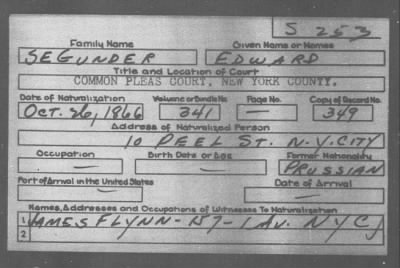 S 253
Family Name Given Name or Names
SEGUNDER EDWARD
Title and Location of Court
COMMON PLEAS COURT, NEW YORK COUNTY.
Date of Naturalization Volume or Bundle No. Page No. Copy of Record No.
OCT. 26, 1866 341 — 349
Address of Naturalized Person
10 PEEL ST. N.Y. CITY
Occupation Birth Date or Age Former Nationality
— — PRUSSIAN
Port of Arrival in the United States Date of Arrival
— —
Names, Addresses and Occupations of Witnesses To Naturalization
1 JAMES FLYNN - 157 - 1 AV. NYC
2